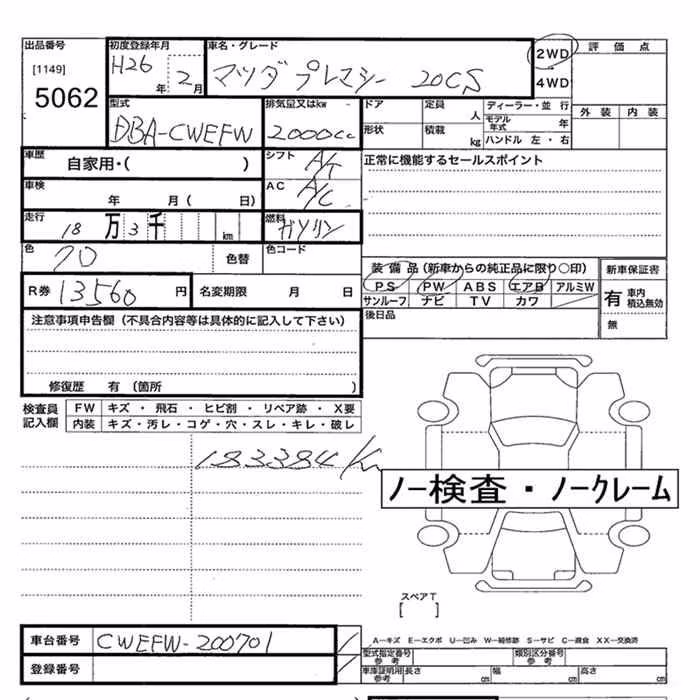 出品番号 初度登録年月 車名・グレード 2WD 評価点
[1149] H26年 2月 マツダ プレマシー 20CS 4WD
5062
型式 排気量又はkw ドア 定員 人 ディーラー・並行 外装 内装
DBA-CWEFW 2000cc 形状 積載 kg モデル年式 年
ハンドル 左・右
車歴 自家用・( ) シフト A/T 正常に機能するセールスポイント
車検 年 月( 日) AC A/C
走行 18万3千 km 燃料 ガソリン
色 クロ 色替 色コード
装備品(新車からの純正品に限り○印) 新車保証書
R券 13560円 名変期限 月 日 PS PW ABS エアB アルミW 有 車内積込無効
サンルーフ ナビ TV カワ
注意事項申告欄(不具合内容等は具体的に記入して下さい) 後日品 無
修復歴 有(箇所 )
検査員記入欄 FW キズ・飛石・ヒビ割・リペア跡・X要
内装 キズ・汚レ・コゲ・穴・スレ・キレ・破レ
183384K
ノー検査・ノークレーム
スペアT
[ ]
車台番号 CWEFW-200701 A－キズ E－エクボ U－凹み W－補修跡 S－サビ C－腐食 XX－交換済
型式指定番号 参考 類別区分番号 参考
登録番号 車庫証明用 参考 長さ cm 幅 cm 高さ cm